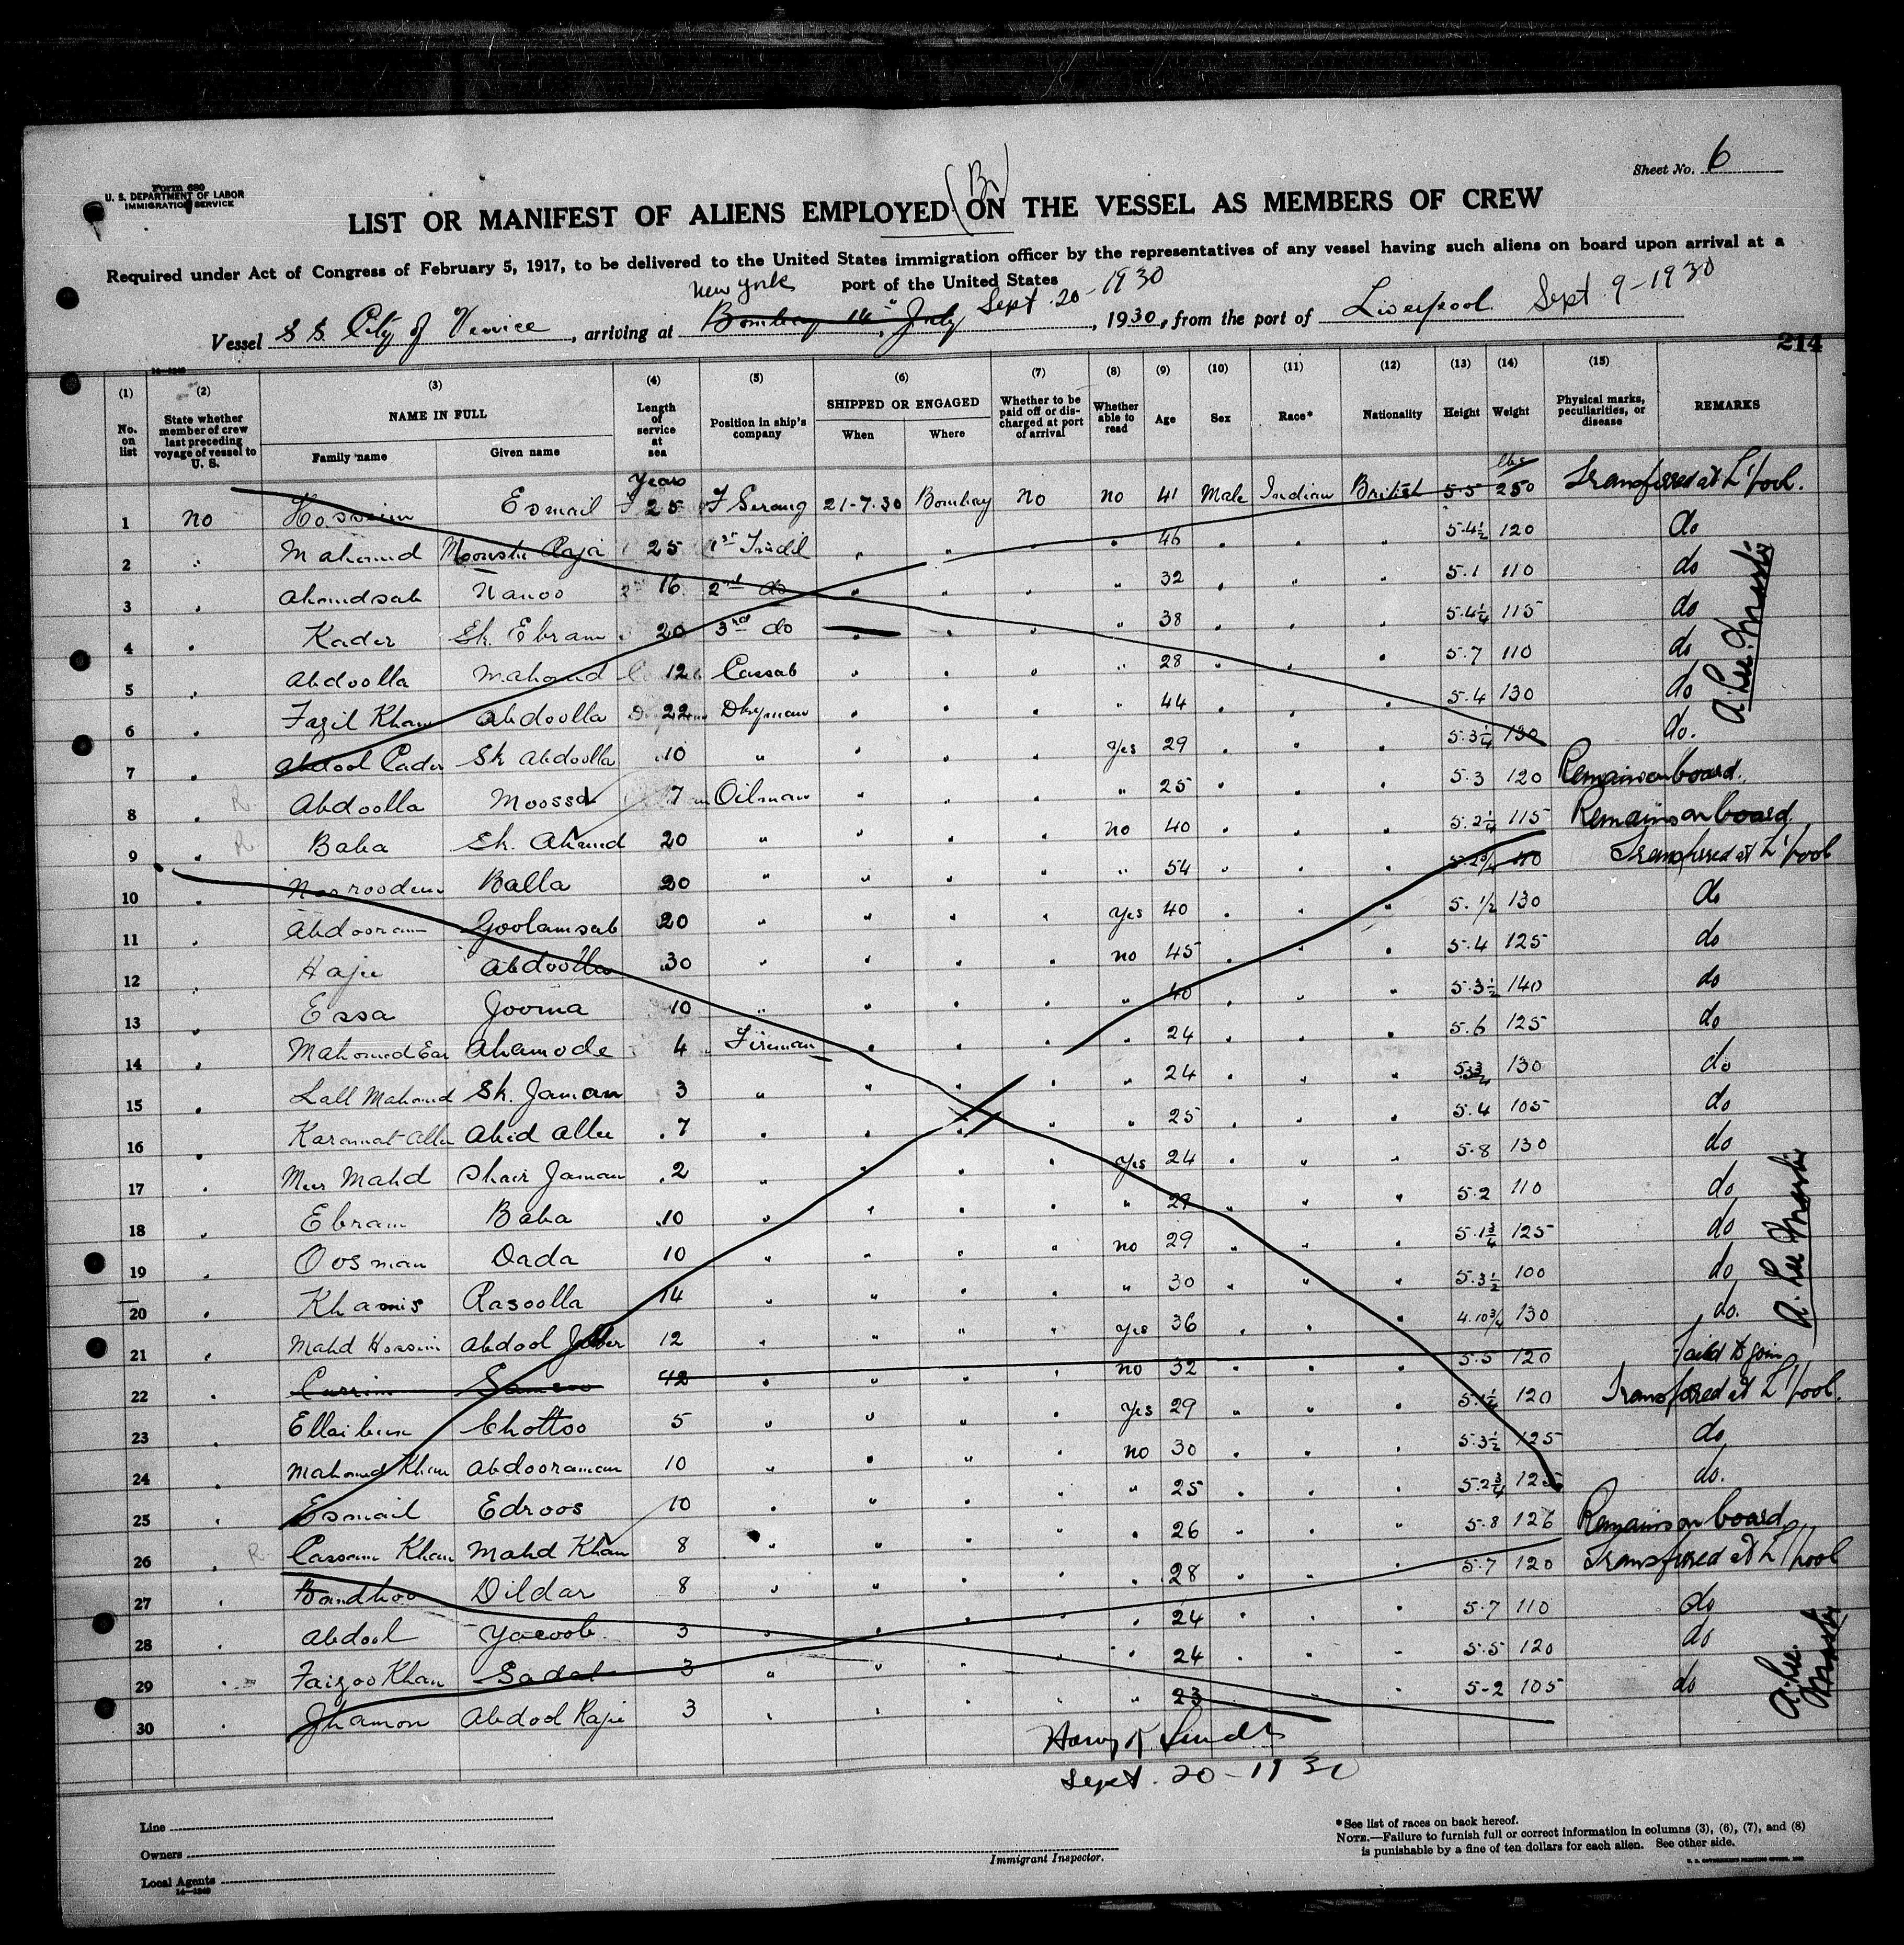 Form 680
U. S. DEPARTMENT OF LABOR
IMMIGRATION SERVICE
Sheet No. 6
(Br)
LIST OR MANIFEST OF ALIENS EMPLOYED ON THE VESSEL AS MEMBERS OF CREW
Required under Act of Congress of February 5, 1917, to be delivered to the United States immigration officer by the representatives of any vessel having such aliens on board upon arrival at a
port of the United States
New York Sept. 20-1930
Vessel S S. City of Venice, arriving at Bombay 14", July, 1930, from the port of Liverpool Sept 9-1930
214
14—1240
(1) (2) (3) (4) (5) (6) (7) (8) (9) (10) (11) (12) (13) (14) (15)
No. on list State whether member of crew last preceding voyage of vessel to U. S. NAME IN FULL Family name Given name Length of service at sea Position in ship's company SHIPPED OR ENGAGED When Where Whether to be paid off or discharged at port of arrival Whether able to read Age Sex Race* Nationality Height Weight Physical marks, peculiarities, or disease REMARKS
Years lbs
1 no Hossein Esmail 25 F Serang 21-7-30 Bombay no no 41 Male Indian British 5-5 250 Transferred at L'pool.
2 " Mahomed Mooushi Raja 25 1st Tindl " " " " 46 " " " 5.4½ 120 do
3 " Ahmedsab Nanoo 16 2nd do " " " " 32 " " " 5.1 110 do
4 " Kader Sk. Ebram 20 3rd do " " " " 38 " " " 5.4¼ 115 do
5 " Abdoolla Mahomed 12 Cassab " " " " 28 " " " 5.7 110 do
6 " Fazil Khan Abdoolla 22 Dkyman " " " " 44 " " " 5.4 130 do
7 " Abdool Cader Sk Abdoolla 10 " " " " Yes 29 " " " 5.3¼ 130 do.
8 " Abdoolla Moossa 7 Oilman " " " " 25 " " " 5.3 120 Remains on board.
9 " Baba Sk. Ahmed 20 " " " " no 40 " " " 5.2¼ 115 Remains on board.
10 " Noorooden Balla 20 " " " " " 54 " " " 5.2¾ 110 Transferred at L'pool
11 " Abdooram Goolamsab 20 " " " " Yes 40 " " " 5.½ 130 do
12 " Hajee Abdoolla 30 " " " " no 45 " " " 5.4 125 do
13 " Essa Jooma 10 " " " " " 40 " " " 5.3½ 140 do
14 " Mahomed Ear Ahamode 4 Fireman " " " " 24 " " " 5.6 125 do
15 " Lall Mahomed Sk. Jaman 3 " " " " " 24 " " " 5.3¾ 130 do
16 " Karamat Allee Abid Allee 7 " " " " " 25 " " " 5.4 105 do
17 " Meer Mahd Shair Jaman 2 " " " " Yes 24 " " " 5.8 130 do
18 " Ebram Baba 10 " " " " " 29 " " " 5.2 110 do
19 " Oosman Dada 10 " " " " no 29 " " " 5.1¾ 125 do
20 " Khamis Rasoolla 14 " " " " " 30 " " " 5.3½ 100 do
21 " Mahd Hossein Abdool Jabber 12 " " " " Yes 36 " " " 4.10¾ 130 do.
22 " Currim Samsoo 12 " " " " no 32 " " " 5.5 120 Failed to join
23 " Ellai bux Chottoo 5 " " " " Yes 29 " " " 5.1½ 120 Transferred at L'pool.
24 " Mahomed Khan Abdooraman 10 " " " " no 30 " " " 5.3½ 125 do
25 " Esmail Edroos 10 " " " " " 25 " " " 5.2¾ 125 do.
26 " Cassam Khan Mahd Khan 8 " " " " " 26 " " " 5.8 126 Remains on board
27 " Bandhoo Dildar 8 " " " " " 28 " " " 5.7 120 Transferred at L'pool
28 " Abdool Yacoob. 3 " " " " " 24 " " " 5.7 110 do
29 " Faizoo Khan Sadat 3 " " " " " 24 " " " 5.5 120 do
30 " Jhamon Abdool Rajie 3 " " " " " 23 " " " 5-2 105 do
Sept. 20-1930
Line
Owners
Local Agents
14—1240
Immigrant Inspector.
*See list of races on back hereof.
NOTE.—Failure to furnish full or correct information in columns (3), (6), (7), and (8)
is punishable by a fine of ten dollars for each alien. See other side.